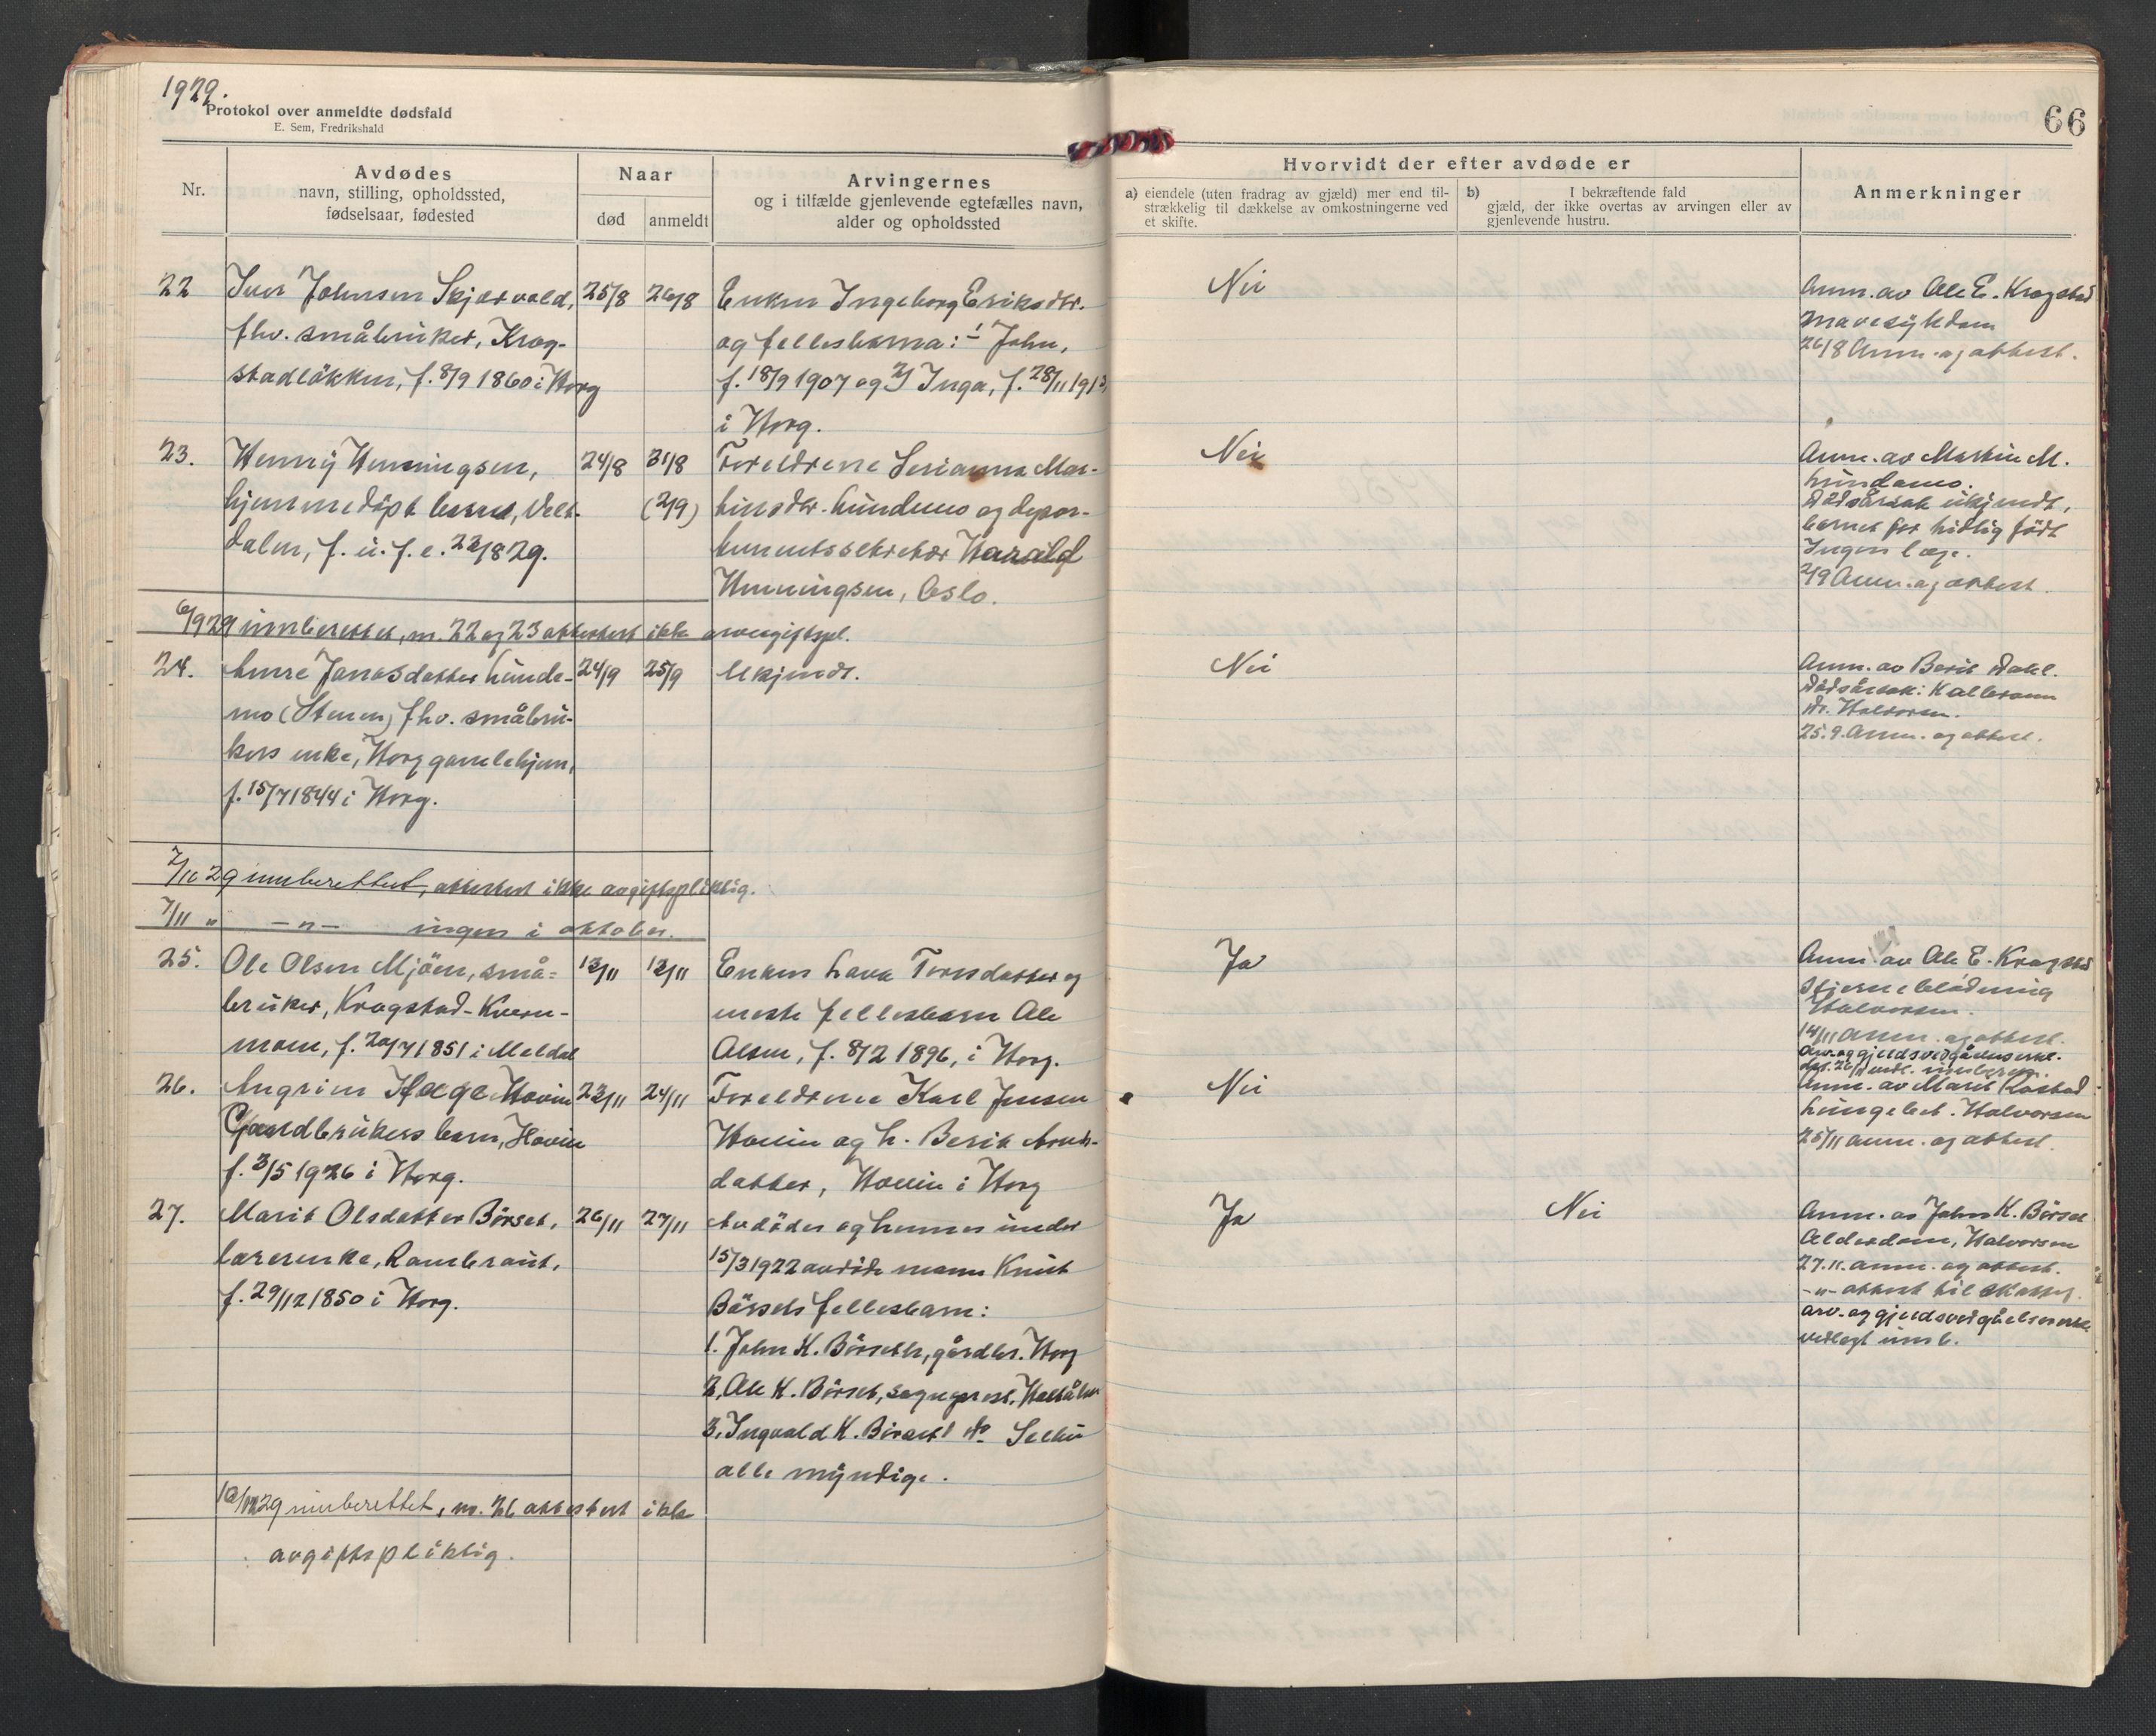 1929.
Protokol over anmeldte dødsfald
E. Sem, Fredrikshald
66
Nr.
Avdødes
navn, stilling, opholdssted,
fødselsaar, fødested
Naar
død
anmeldt
Arvingernes
og i tilfælde gjenlevende egtefælles navn,
alder og opholdssted
Hvorvidt der efter avdøde er
a) eiendele (uten fradrag av gjæld) mer end til-
strækkelig til dækkelse av omkostningerne ved
et skifte.
b) I bekræftende fald
gjæld, der ikke overtas av arvingen eller av
gjenlevende hustru.
Anmerkninger
22
Iver Johnsen Skjærvold,
fhv. småbruker, Krog-
stadløkken, f. 8/9 1860 i Horg
25/8
26/8
Enken Ingeborg Eriksdtr.
og fellesbarna: 1 John,
f. 18/9 1907 og 2) Inga, f. 28/11 1913,
i Horg.
Nei
Anm. av Ole E. Krogstad
Mavesykdom
26/8 Anm. og attest.
23.
Henry Henningsen,
hjemmedøpt barn,
dalen, f. u. f. e. 22/8 29.
24/8
31/8
(2/9)
Foreldrene Serianna Mar-
tinsdtr. Lundemo og depar-
tementssekretær Harald
Henningsen, Oslo.
Nei
Anm. av Martin M.
Lundamo.
Dødsårsak ukjendt,
barnet for tidlig født
Ingen læge.
2/9 Anm. og attest.
6/9 29 innberettet, nr. 22 og 23 attestert ikke arveavgiftspl.
24.
Anne Jonasdatter Lunde-
mo (Stenen) fhv. småbru-
kers enke, Horg gamlehjem,
f. 15/7 1844 i Horg.
24/9
25/9
Ukjendt.
Nei
Anm. av Berit Dahl.
Dødsårsak: Kallbrann
Dr. Halvorsen.
25.9. Anm. og attest.
7/10 29 innberettet, attestert ikke avgiftspliktig.
7/11 " -"- ingen i oktober.
25.
Ole Olsen Mjøen, små-
bruker, Krogstad-Kvern-
moen, f. 20/7 1851 i Meldal
13/11
13/11
Enken Lava Toresdatter og
eneste fellesbarn Ole
Olsen, f. 8/2 1896, i Horg.
Ja
Anm. av Ole E. Krogstad
Hjerneblødning
Halvorsen.
14/11 Anm. og attest.
Arv- og gjeldsvedgåelseserkl.
26.
Angrim Hage Hovin
Gardbrukers barn, Hovin
f. 3/5 1926 i Horg.
23/11
24/11
Foreldrene Karl Jensen
Hovin og h. Berit Arnts-
datter, Hovin i Horg
Nei
Anm. av Marit Rostad
Lungebet. Halvorsen
25/11 anm. og attest.
27.
Marit Olsdatter Børset,
lærerenke, Rambraut,
f. 29/12 1850 i Horg.
26/11
27/11
Avdødes og hennes under
15/3 1922 avdøde mann Knut
Børsets fellesbarn:
1. John K. Børseth, gårdbr. Horg
2, Ole K. Børset, sogneprest, Haltdålen
3, Ingvald K. Børset do Selbu
alle myndige.
Ja
Nei
Anm. av John K. Børset
Alderdom, Halvorsen
27.11. anm. og attest.
-"- attest til
Arv- og gjeldsvedgåelseserkl.
vedlagt innb.
10/12 29 innberettet, nr. 26 attestert ikke
avgiftspliktig.